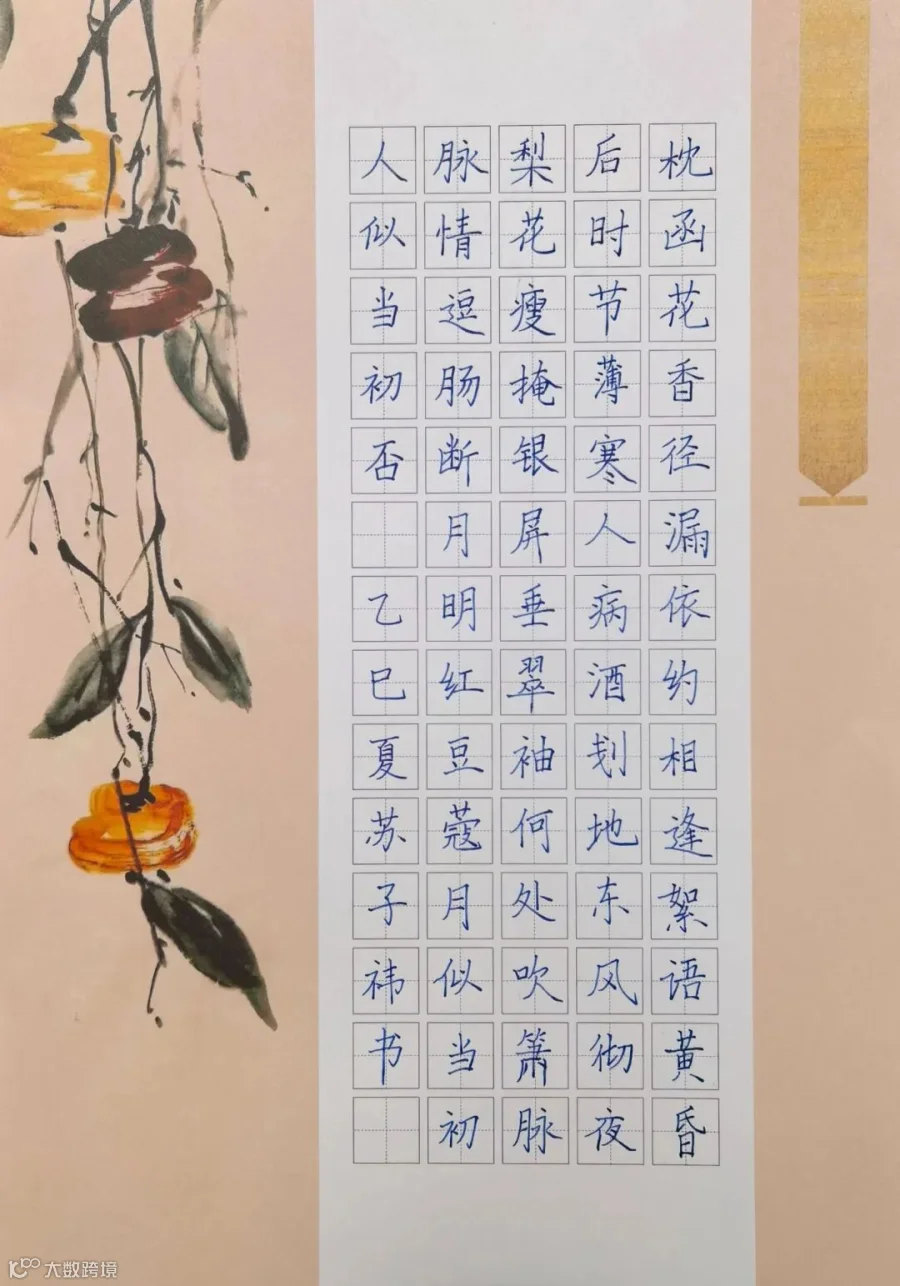 枕函花香径漏依约相逢絮语黄昏
后时节薄寒人病酒刬地东风彻夜
梨花瘦掩银屏垂翠袖何处吹箫脉
脉情逗肠断月明红豆蔻月似当初
人似当初否 乙巳夏苏子祎书
大数跨境